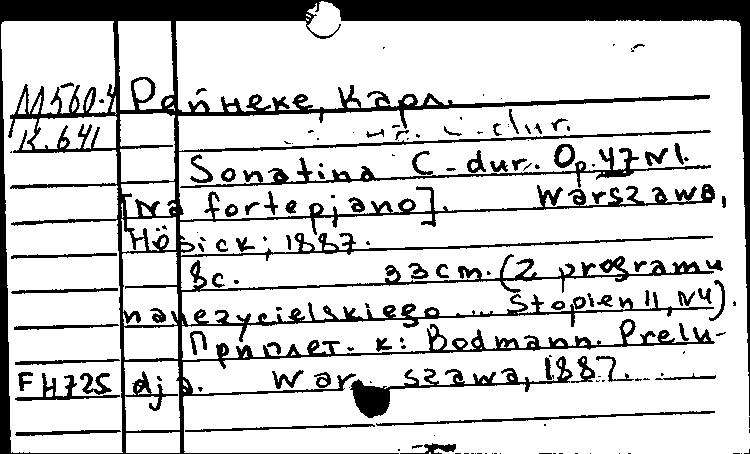 М560.4 Рейнеке, Карл.
К.641
C-dur.
Sonatina C-dur. Op.47 N1.
[Na fortepjano]. Warszawa,
Hösick, 1887.
8с. 33cm. (Z programu
nauczycielskiego... Stopien II, N4).
Приплет. к: Bodmann. Prelu-
FH725 dja. Warszawa, 1887.